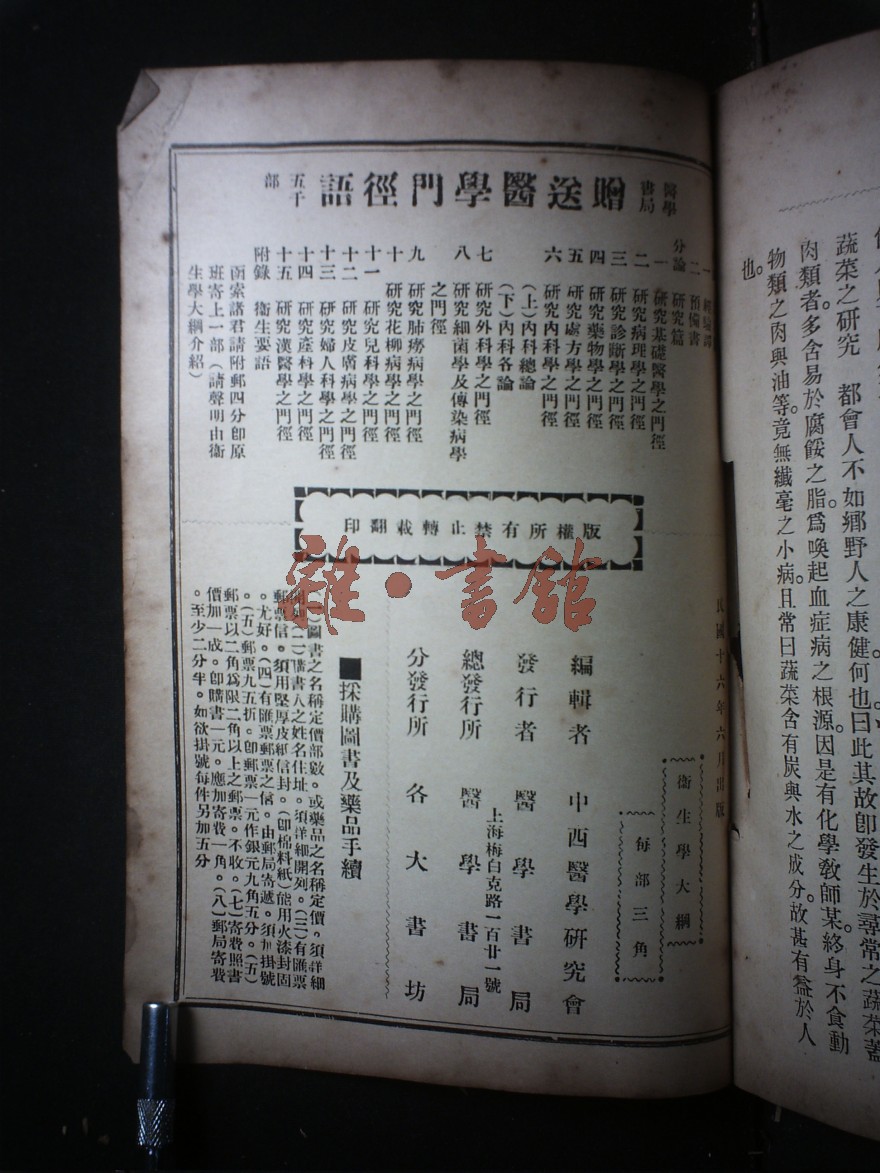 也。
物類之肉與油等。竟無纖毫之小病。且常曰蔬菜含有炭與水之成分。故甚有益於人
肉類者。多含易於腐餒之脂。爲喚起血症病之根源。因是有化學教師某。終身不食動
蔬菜之研究　都會人不如鄉野人之康健。何也。曰此其故卽發生於尋常之蔬菜。蓋
醫學書局
贈送醫學門徑語
五千部
二　預備書
分論　研究篇
一　研究基礎醫學之門徑
二　研究病理學之門徑
三　研究診斷學之門徑
四　研究藥物學之門徑
五　研究處方學之門徑
六　研究內科學之門徑
（上）內科總論
（下）內科各論
七　研究外科學之門徑
八　研究細菌學及傳染病學
之門徑
九　研究肺癆病學之門徑
十　研究花柳病學之門徑
十一　研究兒科學之門徑
十二　研究皮膚病學之門徑
十三　研究婦人科學之門徑
十四　研究產科學之門徑
十五　研究漢醫學之門徑
附錄　衞生要語
函索諸君請附郵四分卽原
班寄上一部（請聲明由衞
生學大綱介紹）
版權所有禁止轉載翻印
民國十六年六月出版
衞生學大綱
每部三角
編輯者　中西醫學研究會
發行者　醫學書局
上海梅白克路一百廿一號
總發行所　醫學書局
分發行所　各大書坊
■採購圖書及藥品手續
（一）圖書之名稱定價部數。或藥品之名稱定價。須詳細
開列。（二）購書人之姓名住址。須詳細開列。（三）有匯票
郵票信。須用堅厚皮紙信封。（卽棉料紙）能用火漆封固
。尤好。（四）有匯票郵票之信。由郵局寄遞。須加掛號
。（五）郵票九五折。卽郵票一元作銀元九角五分。（五）
郵票以二角爲限二角以上之郵票。不收。（七）寄費照書
價加一成。卽購書一元。應加寄費一角。（八）郵局寄費
。至少二分半。如欲掛號每件另加五分
雜·書館